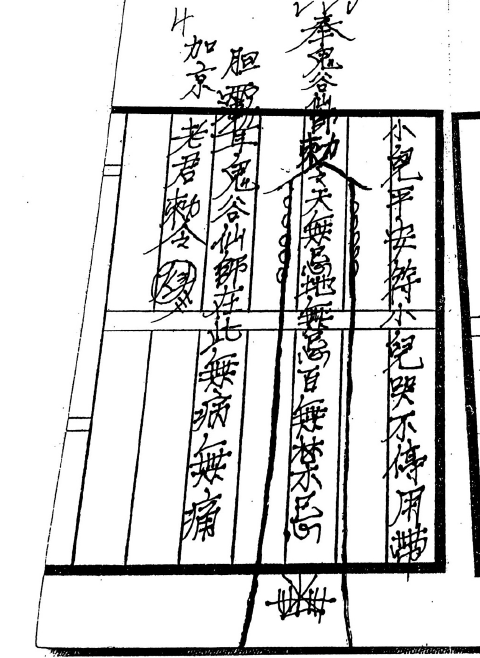 小兒平安符小兒哭不停用帶
奉鬼谷仙師勅令天無忌地無忌百無禁忌
胆
鬼谷仙師在此無病無痛
加京
老君勅令